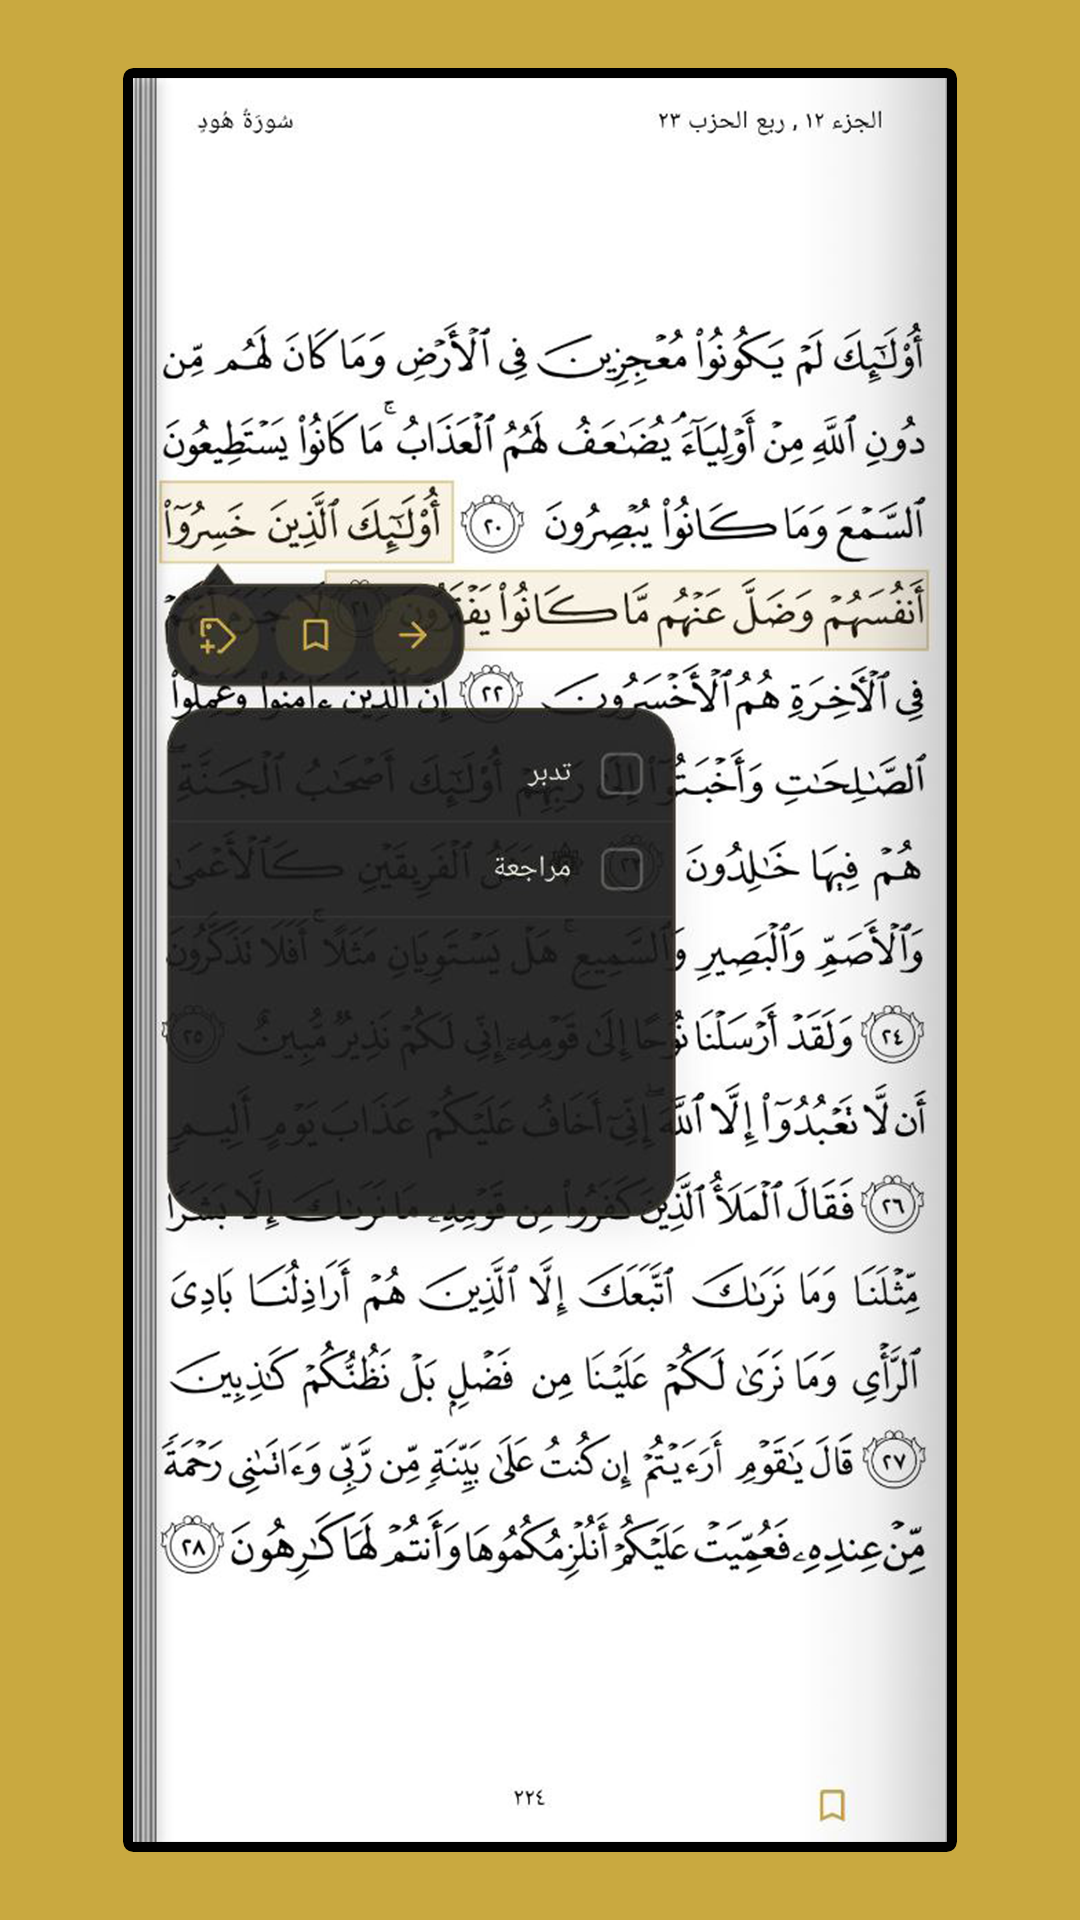 الجزء ١٢ , ربع الحزب ٢٣
سُورَةُ هُودِ
أُوْلَـٰٓئِكَ لَمْ يَكُونُوا۟ مُعْجِزِينَ فِى ٱلْأَرْضِ وَمَا كَانَ لَهُم مِّن
دُونِ ٱللَّهِ مِنْ أَوْلِيَآءَ ۘ يُضَـٰعَفُ لَهُمُ ٱلْعَذَابُ ۚ مَا كَانُوا۟ يَسْتَطِيعُونَ
ٱلسَّمْعَ وَمَا كَانُوا۟ يُبْصِرُونَ ٢٠ أُوْلَـٰٓئِكَ ٱلَّذِينَ خَسِرُوٓا۟
أَنفُسَهُمْ وَضَلَّ عَنْهُم مَّا كَانُوا۟ يَفْتَرُونَ ٢١ لَا جَرَمَ أَنَّهُمْ
فِى ٱلْـَٔاخِرَةِ هُمُ ٱلْأَخْسَرُونَ ٢٢ إِنَّ ٱلَّذِينَ ءَامَنُوا۟ وَعَمِلُوا۟
ٱلصَّـٰلِحَـٰتِ وَأَخْبَتُوٓا۟ إِلَىٰ رَبِّهِمْ أُوْلَـٰٓئِكَ أَصْحَـٰبُ ٱلْجَنَّةِ ۖ
تدبر
هُمْ فِيهَا خَـٰلِدُونَ ٢٣ ۞ مَثَلُ ٱلْفَرِيقَيْنِ كَٱلْأَعْمَىٰ
مراجعة
وَٱلْأَصَمِّ وَٱلْبَصِيرِ وَٱلسَّمِيعِ ۚ هَلْ يَسْتَوِيَانِ مَثَلًا ۚ أَفَلَا تَذَكَّرُونَ
٢٤ وَلَقَدْ أَرْسَلْنَا نُوحًا إِلَىٰ قَوْمِهِۦٓ إِنِّى لَكُمْ نَذِيرٌ مُّبِينٌ ٢٥
أَن لَّا تَعْبُدُوٓا۟ إِلَّا ٱللَّهَ ۖ إِنِّىٓ أَخَافُ عَلَيْكُمْ عَذَابَ يَوْمٍ أَلِيمٍ
٢٦ فَقَالَ ٱلْمَلَأُ ٱلَّذِينَ كَفَرُوا۟ مِن قَوْمِهِۦ مَا نَرَىٰكَ إِلَّا بَشَرًا
مِّثْلَنَا وَمَا نَرَىٰكَ ٱتَّبَعَكَ إِلَّا ٱلَّذِينَ هُمْ أَرَاذِلُنَا بَادِىَ
ٱلرَّأْىِ وَمَا نَرَىٰ لَكُمْ عَلَيْنَا مِن فَضْلٍۭ بَلْ نَظُنُّكُمْ كَـٰذِبِينَ
٢٧ قَالَ يَـٰقَوْمِ أَرَءَيْتُمْ إِن كُنتُ عَلَىٰ بَيِّنَةٍ مِّن رَّبِّى وَءَاتَىٰنِى رَحْمَةً
مِّنْ عِندِهِۦ فَعُمِّيَتْ عَلَيْكُمْ أَنُلْزِمُكُمُوهَا وَأَنتُمْ لَهَا كَـٰرِهُونَ ٢٨
٢٢٤